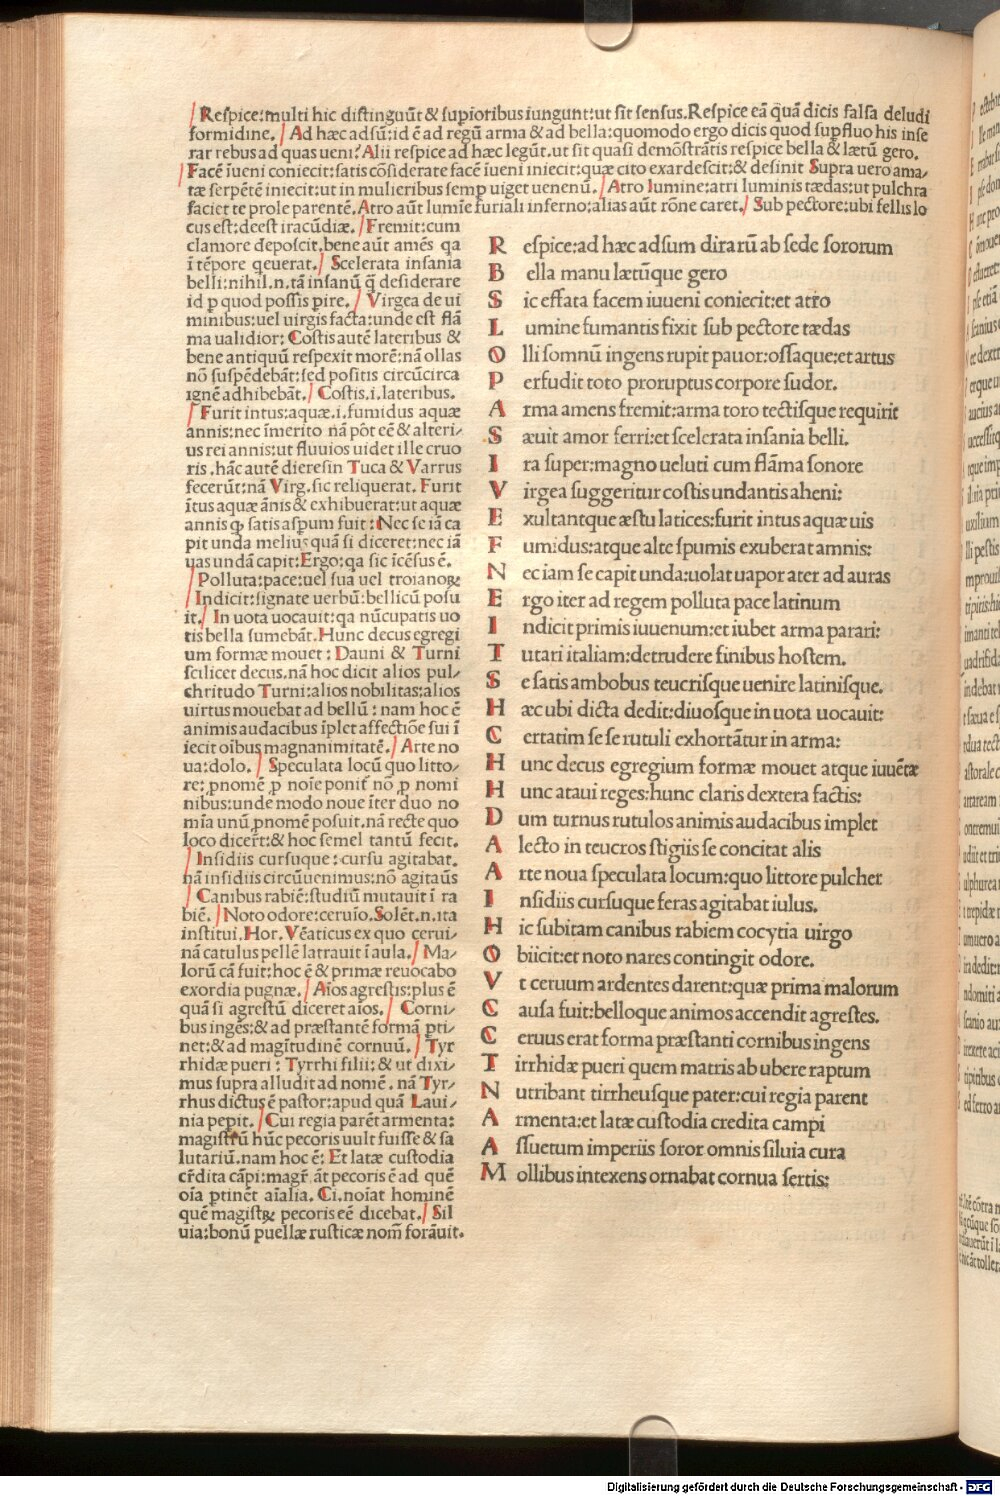 Respice:multi hic distinguūt & supioribus iungunt:ut sit sensus.Respice eā quā dicis falsa deludi
formidine. Ad hæc adsū:id ē ad regū arma & ad bella:quomodo ergo dicis quod supfluo his inse
rar rebus ad quas ueni? Alii respice ad hæc legūt.ut sit quasi demōstrātis respice bella & lætū gero.
Facē īueni coniecit:satis cōsiderate facē īueni iniecit:quæ cito exardescit:& desinit Supra uero ama/
tæ serpētē iniecit:ut in mulieribus semp uiget uenenū. Atro lumine:atri luminis tædas:ut pulchra
faciet te prole parentē. Atro aūt lumīe furiali inferno:alias aūt rōne caret. Sub pectore:ubi fellis lo
cus est:deest iracūdiæ. Fremit:cum
clamore deposcit.bene aūt amēs qa
ī tēpore qeuerat. Scelerata insania
belli:nihil.n.tā insanū q̄ desiderare
id p quod possis pire. Virgea de ui
minibus:uel uirgis facta:unde est flā
ma ualidior: Costis autē lateribus &
bene antiquū respexit morē:nā ollas
nō suspēdebāt:sed positis circūcirca
ignē adhibebāt. Costis.i.lateribus.
Furit intus:aquæ.i.fumidus aquæ
annis:nec īmerito nā pōt eē & alteri/
us rei annis:ut fluuios uidet ille cruo
ris.hāc autē dieresin Tuca & Varrus
fecerūt:nā Virg.sic reliquerat. Furit
itus aquæ ānis & exhibuerat:ut aquæ
annis qp satis aspum fuit: Nec se iā ca
pit unda melius quā si diceret:nec iā
uas undā capit:Ergo:qa sic īcēsus ē.
Polluta:pace:uel sua uel troianoꝝ
Indicit:signate uerbū:bellicū posu
it. In uota uocauit:qa nūcupatis uo
tis bella sumebāt.Hunc decus egregi
um formæ mouet: Dauni & Turni
scilicet decus.nā hoc dicit alios pul/
chritudo Turni:alios nobilitas:alios
uirtus mouebat ad bellū: nam hoc ē
animis audacibus īplet affectiōe sui ī
iecit oībus magnanimitatē. Arte no
ua:dolo. Speculata locū quo litto/
re:pnomē p noīe ponit nō p nomi
nibus:unde modo noue īter duo no
mīa unū pnomē posuit.nā recte quo
loco dicert:& hoc semel tantū fecit.
Insidiis cursuque:cursu agitabat.
nā insidiis circūuenimus:nō agitaūs
Canibus rabiē:studiū mutauit ī ra
biē. Noto odore:ceruīo.Solēt.n.ita
institui.Hor. Vēaticus ex quo cerui/
nā catulus pellē latrauit ī aula. Ma/
lorū cā fuit:hoc ē & primæ reuocabo
exordia pugnæ. Aīos agrestis:plus ē
quā si agrestū diceret aīos. Corni/
bus ingēs:& ad præstantē formā pti/
net:& ad magītudinē cornuū. Tyr
rhidæ pueri: Tyrrhi filii:& ut dixi/
mus supra alludit ad nomē. nā Tyr/
rhus dictus ē pastor:apud quā Laui/
nia pepit. Cui regia parēt armenta:
magistrū hūc pecoris uult fuisse & sa
lutariū.nam hoc ē: Et latæ custodia
cr̄dita cāpi:magr̄ āt pecoris ē ad quē
oīa ptinēt aīalia. Ci.noīat hominē
quē magistꝝ pecoris eē dicebat. Sil
uia:bonū puellæ rusticæ nom̄ forāuit.
R espice:ad hæc adsum dirarū ab sede sororum
B ella manu lætūque gero
S ic effata facem iuueni coniecit:et atro
L umine fumantis fixit sub pectore tædas
O lli somnū ingens rupit pauor:ossaque:et artus
P erfudit toto proruptus corpore sudor.
A rma amens fremit:arma toro tectisque requirit
S æuit amor ferri:et scelerata insania belli.
I ra super:magno ueluti cum flāma sonore
V irgea suggeritur costis undantis aheni:
E xultantque æstu latices:furit intus aquæ uis
F umidus:atque alte spumis exuberat amnis:
N ec iam se capit unda:uolat uapor ater ad auras
E rgo iter ad regem polluta pace latinum
I ndicit primis iuuenum:et iubet arma parari:
T utari italiam:detrudere finibus hostem.
S e satis ambobus teucrisque uenire latinisque.
H æc ubi dicta dedit:diuosque in uota uocauit:
C ertatim se se rutuli exhortātur in arma:
H unc decus egregium formæ mouet atque iuuētæ
H unc ataui reges:hunc claris dextera factis:
D um turnus rutulos animis audacibus implet
A lecto in teucros stigiis se concitat alis
A rte noua speculata locum:quo littore pulcher
I nsidiis cursuque feras agitabat iulus.
H ic subitam canibus rabiem cocytia uirgo
O biicit:et noto nares contingit odore.
V t ceruum ardentes darent:quæ prima malorum
C ausa fuit:belloque animos accendit agrestes.
C eruus erat forma præstanti cornibus ingens
T irrhidæ pueri quem matris ab ubere raptum
N utribant tirrheusque pater:cui regia parent
A rmenta:et latæ custodia credita campi
A ssuetum imperiis soror omnis siluia cura
M ollibus intexens ornabat cornua sertis:
Digitalisierung gefördert durch die Deutsche Forschungsgemeinschaft - DFG